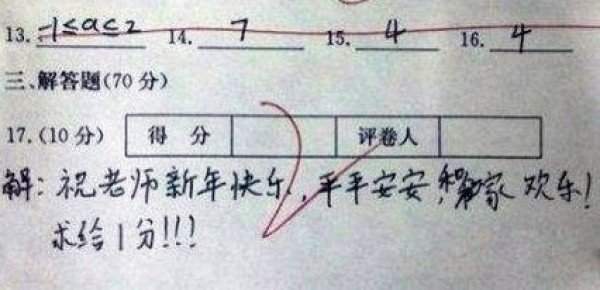 13. -1≤a≤2 14. 7 15. 4 16. 4
三、解答题(70 分)
17.(10 分) 得 分 评卷人
解：祝老师新年快乐，平平安安，家欢乐！
求给1分!!!